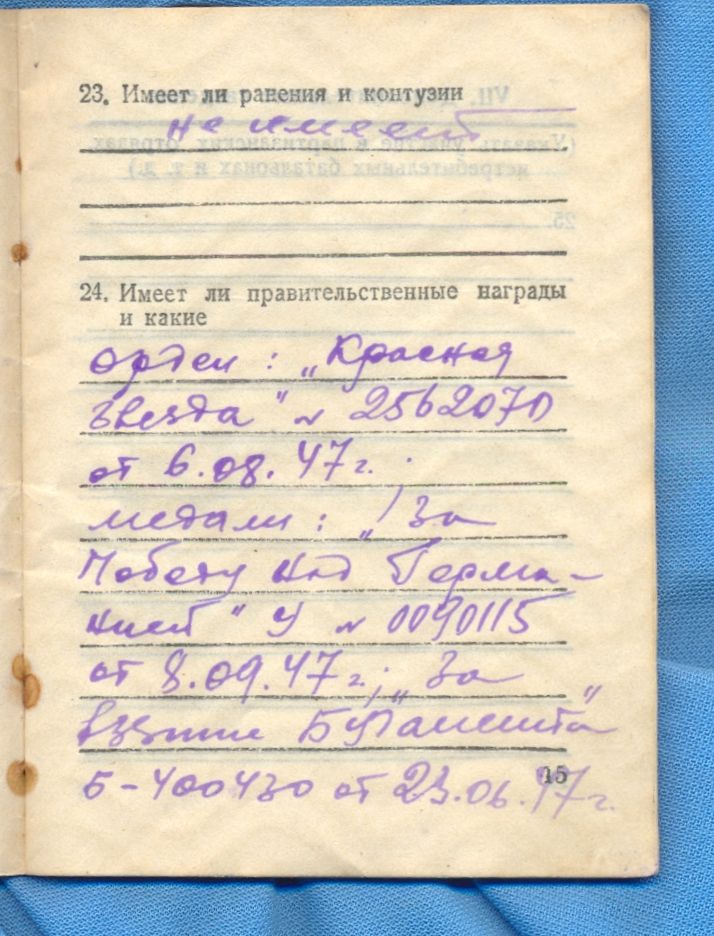 23. Имеет ли ранения и контузии
не имеет
24. Имеет ли правительственные награды
и какие
Орден: „Красная
звезда" № 2562070
от 6.08.47 г.
медали: „За
Победу над Герма-
нией" У № 0090115
от 8.09.47 г.; „За
взятие Будапешта"
Б-400430 от 23.06.47 г.
15